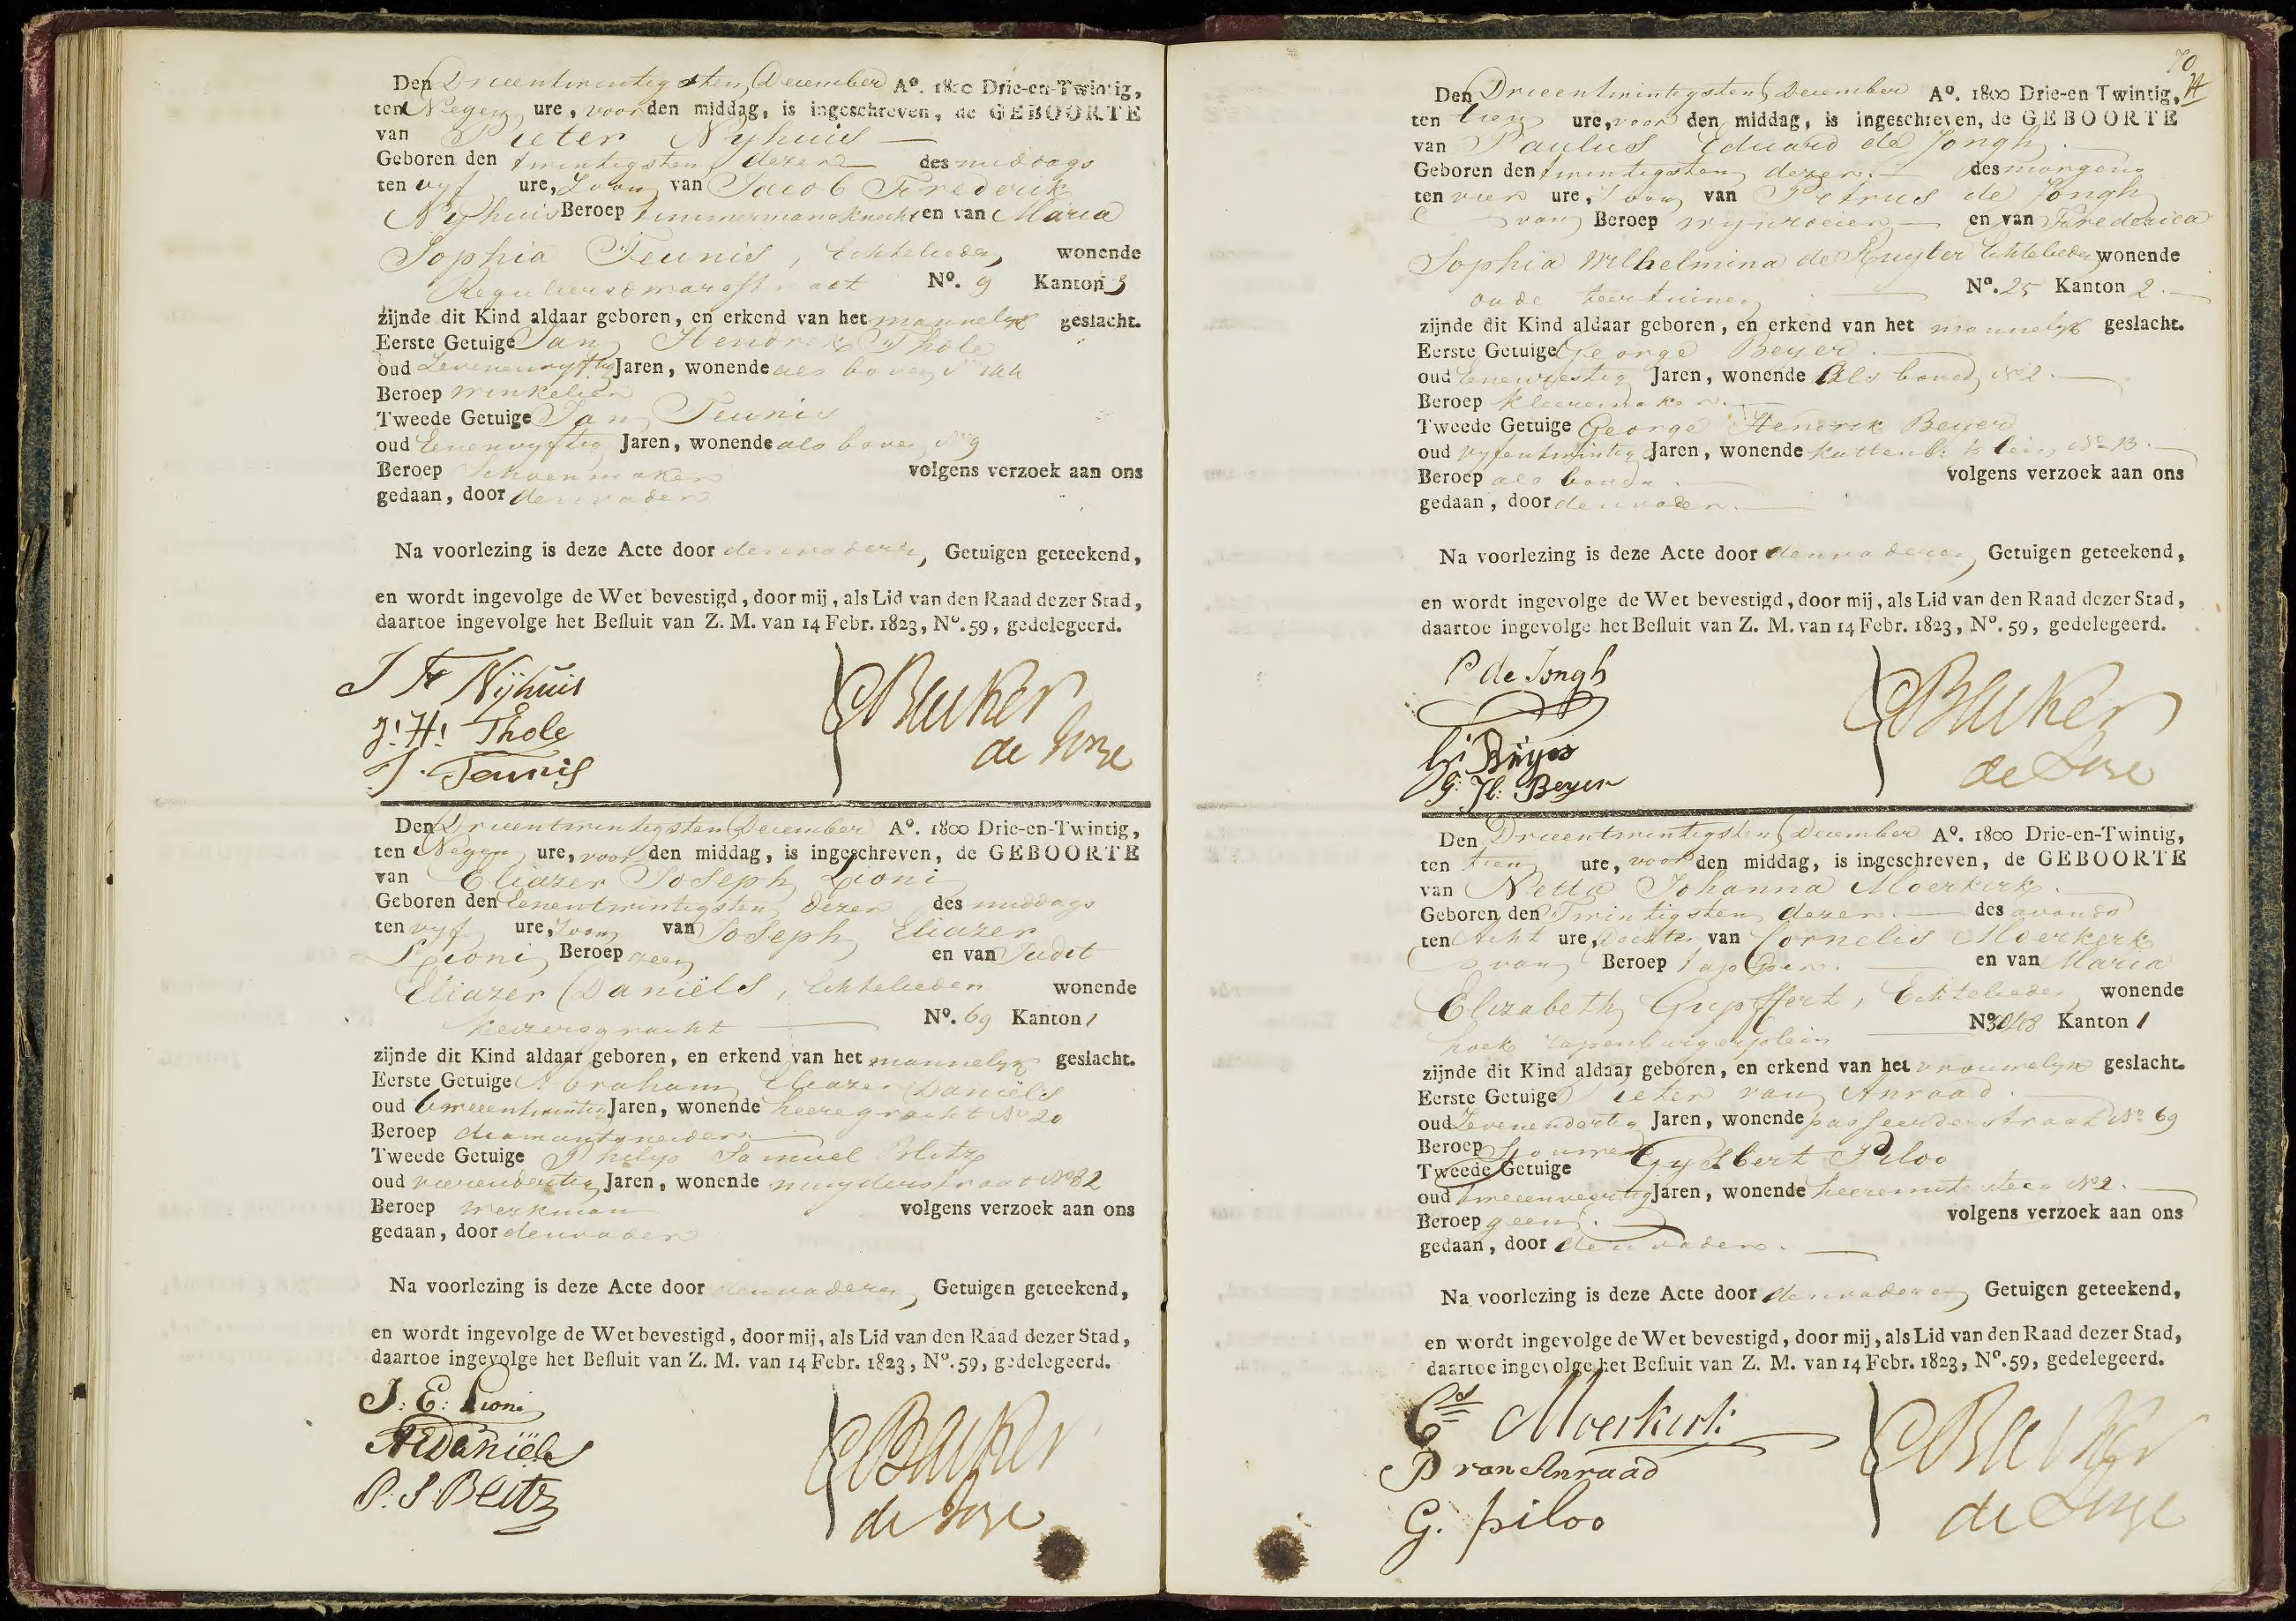 Den Drieentwintigsten December Aº. 1800 Drie-en-Twintig,
ten Negen ure, voor den middag, is ingeschreven, de GEBOORTE
van Pieter Nyhuis
Geboren den twintigsten dezer des middags
ten vyf ure, Zoon van Jacob Frederik
Nyhuis Beroep timmermansknecht en van Maria
Sophia Teunis, Echtelieden wonende
Reguliersdwarsstraat Nº. 9 Kanton 3
zijnde dit Kind aldaar geboren, en erkend van het mannelyk geslacht.
Eerste Getuige Jan Hendrik Thole
oud Zevenenvyftig Jaren, wonende als boven
Beroep winkelier
Tweede Getuige Jan Teunis
oud Eenenvyftig Jaren, wonende als boven Nº 9
Beroep Schoenmaker volgens verzoek aan ons
gedaan, door den vader
Na voorlezing is deze Acte door den vader en Getuigen geteekend,
en wordt ingevolge de Wet bevestigd, door mij, als Lid van den Raad dezer Stad,
daartoe ingevolge het Besluit van Z. M. van 14 Febr. 1823, Nº. 59, gedelegeerd.
J Fr Nijhuis
J: H: Thole
J. Teunis
Den Drieentwintigsten December Aº. 1800 Drie-en-Twintig,
ten Negen ure, voor den middag, is ingeschreven, de GEBOORTE
van Eliazer Joseph Lioni
Geboren den Eenentwintigsten dezer des middags
ten vyf ure, Zoon van Joseph Eliazer
Lioni Beroep geen en van Judit
Eliazer Daniëls, Echtelieden wonende
Keizersgracht Nº. 69 Kanton 1
zijnde dit Kind aldaar geboren, en erkend van het mannelyk geslacht.
Eerste Getuige Abraham Eliazer Daniëls
oud tweeentwintig Jaren, wonende heeregracht Nº 20
Beroep diamantsneider
Tweede Getuige Philip Samuel Blitz
oud vierendertig Jaren, wonende muyderstraat Nº 82
Beroep werkman volgens verzoek aan ons
gedaan, door den vader
Na voorlezing is deze Acte door den vader en Getuigen geteekend,
en wordt ingevolge de Wet bevestigd, door mij, als Lid van den Raad dezer Stad,
daartoe ingevolge het Besluit van Z. M. van 14 Febr. 1823, Nº. 59, gedelegeerd.
J: E: Lioni
AE Daniëls
P: S: Blitz
70
Den Drieentwintigsten December Aº. 1800 Drie-en Twintig,
ten tien ure, voor den middag, is ingeschreven, de GEBOORTE
van Paulus Eduard de Jongh
Geboren den twintigsten dezer. des morgens
ten vier ure, Zoon van Petrus de Jongh
van Beroep wynroeier en van Frederica
Sophia Wilhelmina de Ruyter Echtelieden wonende
oude teertuinen Nº. 25 Kanton 2.
zijnde dit Kind aldaar geboren, en erkend van het mannelyk geslacht.
Eerste Getuige George Beyer
oud Eenenzestig Jaren, wonende Als boven Nº 2.
Beroep kleeremaker
Tweede Getuige George Hendrik Beyer
oud vyfentwintig Jaren, wonende Kattenb: plein Nº 13.
Beroep als boven volgens verzoek aan ons
gedaan, door den vader.
Na voorlezing is deze Acte door den vader en Getuigen geteekend,
en wordt ingevolge de Wet bevestigd, door mij, als Lid van den Raad dezer Stad,
daartoe ingevolge het Besluit van Z. M. van 14 Febr. 1823, Nº. 59, gedelegeerd.
P de Jongh
G: H: Beyer
Den Drieentwintigsten December Aº. 1800 Drie-en-Twintig,
ten tien ure, voor den middag, is ingeschreven, de GEBOORTE
van Netta Johanna Moerkerk.
Geboren den Twintigsten dezer. des avonds
ten Acht ure, Dochter van Cornelis Moerkerk
van Beroep tapper. en van Maria
Elizabeth, Echtelieden wonende
hoek rapenburgerplein Nº Kanton 1
zijnde dit Kind aldaar geboren, en erkend van het vrouwelyk geslacht.
Eerste Getuige Pieter van Anraad.
oud Zevenendertig Jaren, wonende passeerderstraat Nº 69
Beroep
Tweede Getuige Gysbert Piloo
oud tweeenveertig Jaren, wonende Nº 2.
Beroep geen. volgens verzoek aan ons
gedaan, door den vader.
Na voorlezing is deze Acte door den vader en Getuigen geteekend,
en wordt ingevolge de Wet bevestigd, door mij, als Lid van den Raad dezer Stad,
daartoe ingevolge het Besluit van Z. M. van 14 Febr. 1823, Nº. 59, gedelegeerd.
Cs Moerkerk
P van Anraad
G. piloo